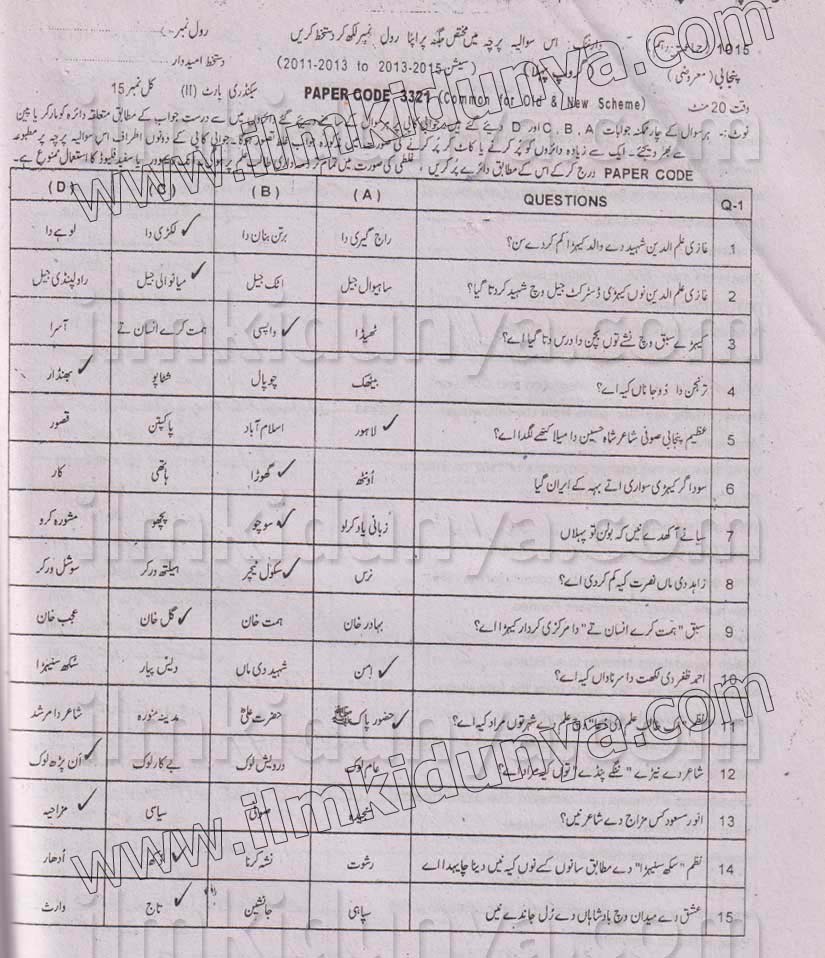 1015 (جماعت دہم) وارننگ: اس سوالیہ پرچہ میں مختص جگہ پر اپنا رول نمبر لکھ کر دستخط کریں رول نمبر
پنجابی (معروضی) (گروپ پہلا) (سیشن 2011-2013 to 2013-2015) دستخط امیدوار
وقت 20 منٹ PAPER CODE 3321 (Common for Old & New Scheme) سیکنڈری پارٹ (II) کل نمبر 15
نوٹ:۔ ہر سوال کے چار ممکنہ جوابات A ، B ، C اور D دیئے گئے ہیں۔ جوابی کاپی پر ہر سوال کے سامنے دیئے گئے دائروں میں سے درست جواب کے مطابق متعلقہ دائرہ کو مارکر یا پین
سے بھر دیجئے۔ ایک سے زیادہ دائروں کو پُر کرنے یا کاٹ کر پُر کرنے کی صورت میں مذکورہ جواب غلط تصور ہوگا۔ جوابی کاپی کے دونوں اطراف اس سوالیہ پرچہ پر مطبوعہ
PAPER CODE درج کر کے اس کے مطابق دائرے پُر کریں ، غلطی کی صورت میں تمام تر ذمہ داری طالب علم پر یا سفید فلیوڈ کا استعمال ممنوع ہے۔
Q-1 QUESTIONS (A) (B) (C) (D)
1 غازی علم الدین شہید دے والد کیہڑا کم کردے سن؟ راج گیری دا برتن بنان دا لکڑی دا ✓ لوہے دا
2 غازی علم الدین نوں کیہڑی ڈسٹرکٹ جیل وچ شہید کردتا گیا؟ ساہیوال جیل اٹک جیل میانوالی جیل ✓ راولپنڈی جیل
3 کیہڑے سبق وچ نشے توں بچن دا درس دتا گیا اے؟ ٹھیڈا واپسی ✓ ہمت کرے انسان تے آسرا
4 ترنجن دا دوجا ناں کیہ اے؟ بیٹھک چوپال شٹاپو بھنڈار ✓
5 عظیم پنجابی صوفی شاعر شاہ حسین دا میلا کتھے لگدا اے؟ لاہور ✓ اسلام آباد پاکپتن قصور
6 سوداگر کیہڑی سواری اتے بہہ کے ایران گیا اونٹھ گھوڑا ✓ ہاتھی کار
7 سیانے آکھدے نیں کہ بولن تو پہلاں زبانی یاد کرلو سوچو ✓ پچھو مشورہ کرو
8 زاہد دی ماں نصرت کیہ کم کردی اے؟ نرس سکول ٹیچر ✓ ہیلتھ ورکر سوشل ورکر
9 سبق "ہمت کرے انسان تے" دا مرکزی کردار کیہڑا اے؟ بہادر خان ہمت خان گل خان ✓ عجب خان
10 احمد ظفر دی لکھت دا سرناواں کیہ اے؟ امن ✓ شہید دی ماں دیس پیار سکھ سنیہڑا
11 نظم علم دے شہر توں مراد کیہ اے؟ حضور پاک ﷺ ✓ حضرت علیؓ مدینہ منورہ شاعر دا مرشد
12 شاعر دے نیڑے "ننگے پنڈے" توں کیہ مراد اے؟ عام لوک درویش لوک بے کار لوک ان پڑھ لوک ✓
13 انور مسعود کس مزاج دے شاعر نیں؟ سیاسی مزاحیہ ✓
14 نظم "سکھ سنیہڑا" دے مطابق سانوں کسے نوں کیہ نیں دینا چاہیدا اے رشوت نشہ کرنا ادھار
15 عشق دے میدان وچ بادشاہاں دے رُل جاندے نیں سپاہی جانشین تاج ✓ وارث
www.ilmkidunya.com
ilmkidunya.com
ilmkidunya.com
ilmkidunya.com
www.ilmkidunya.com